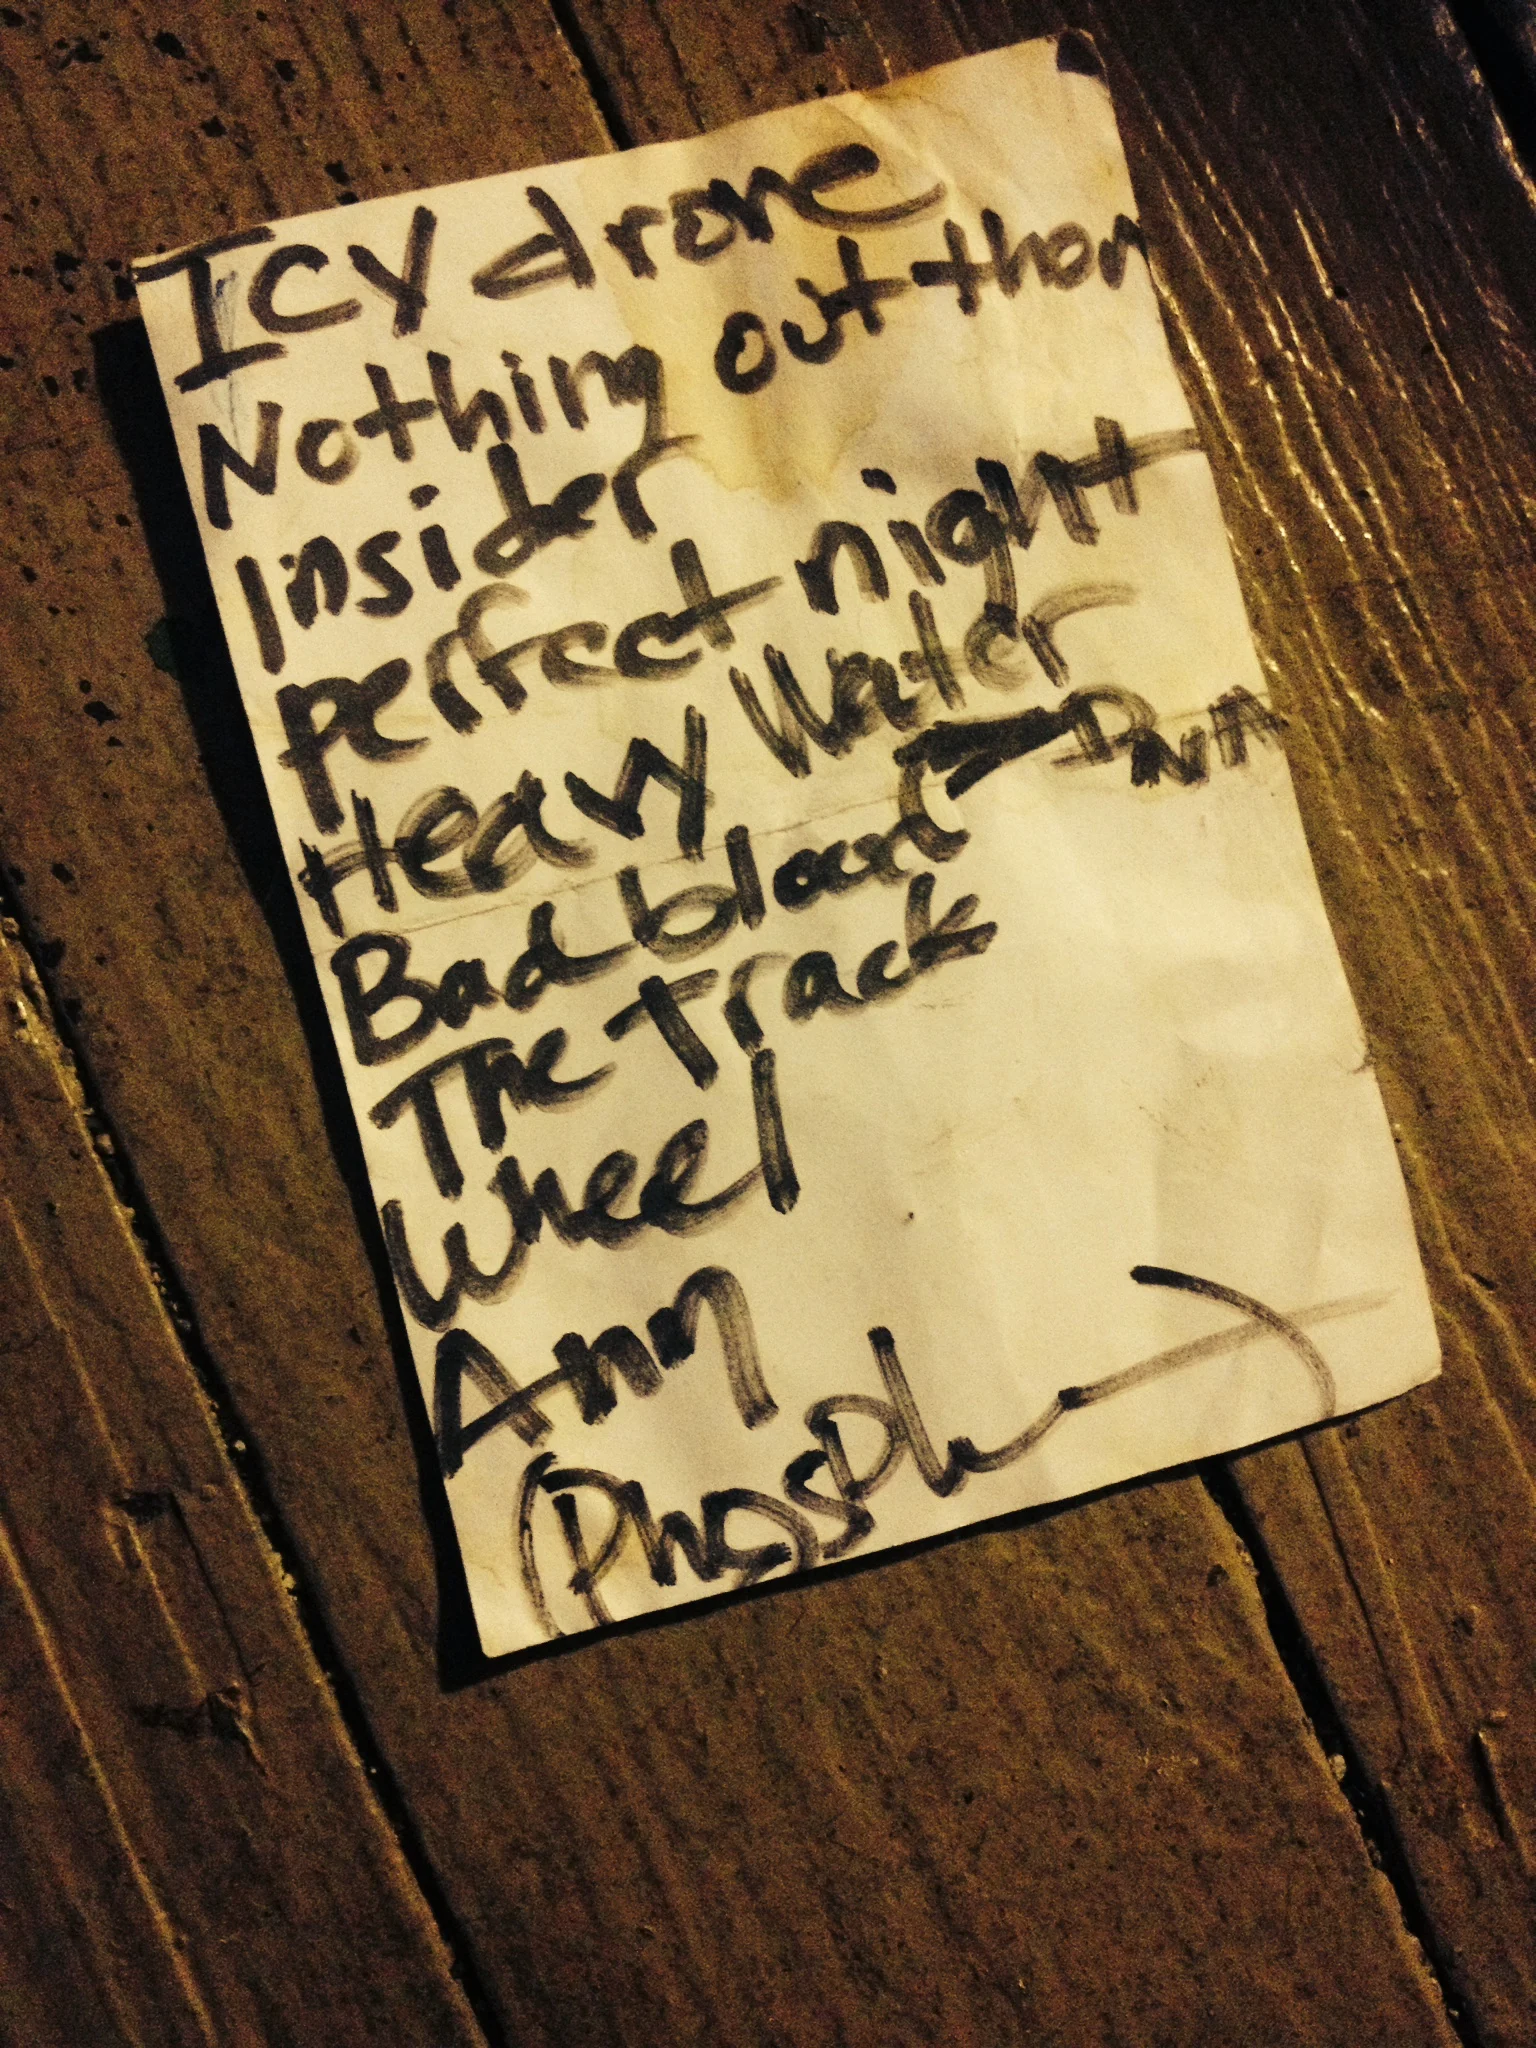 Icy drone
Nothing out thar
Insider
perfect night
Heavy Water
Bad blood DNA
The Track
Wheel
Ann